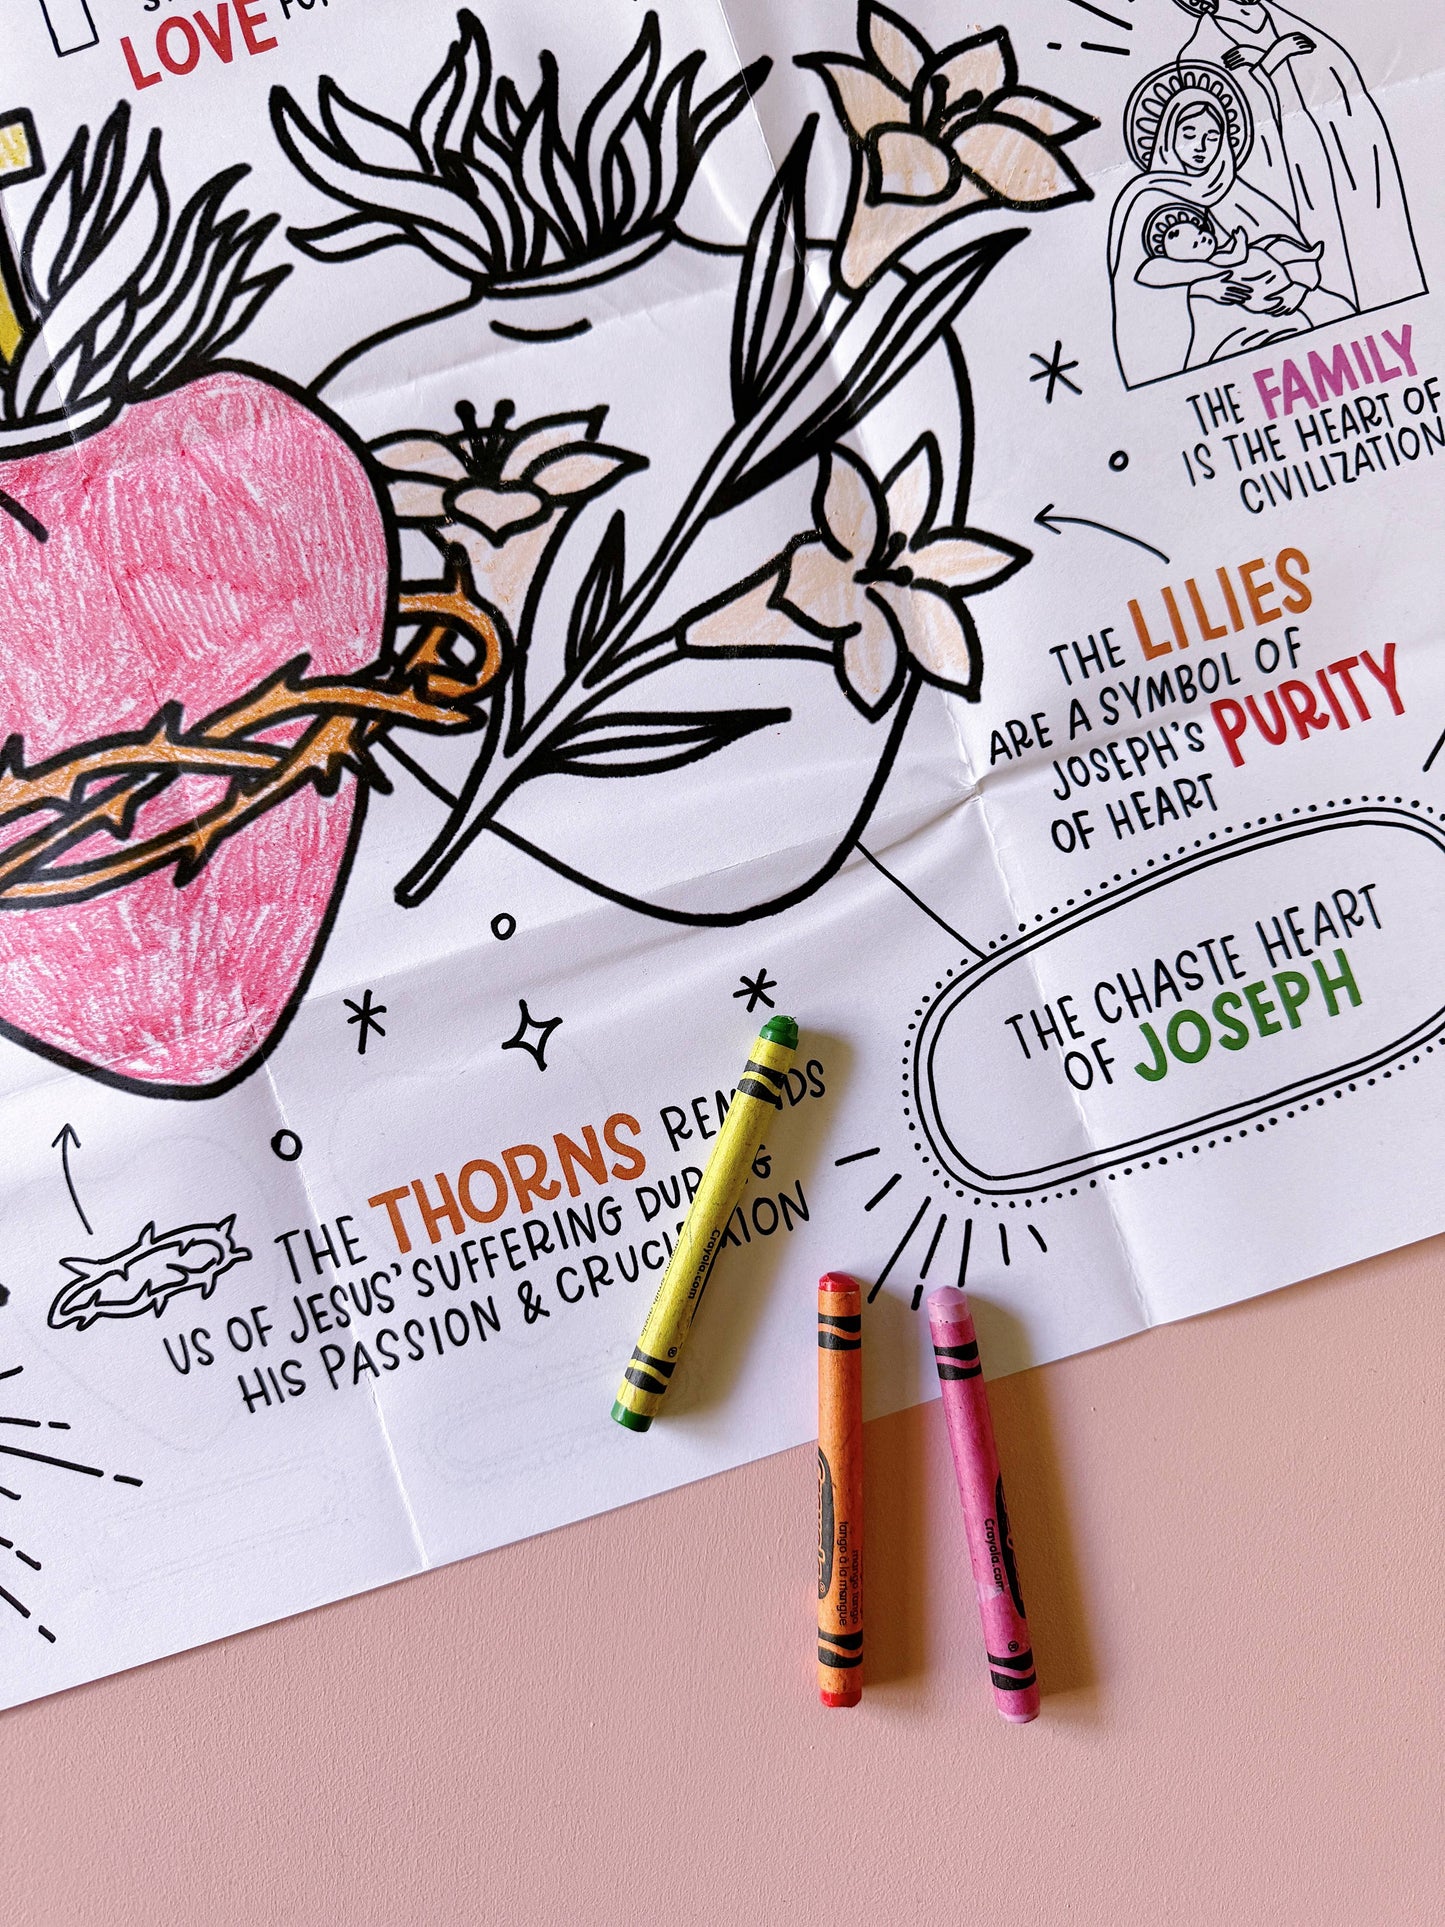 LOVE
THE FAMILY
IS THE HEART OF
CIVILIZATION
THE LILIES
ARE A SYMBOL OF
JOSEPH'S PURITY
OF HEART
THE CHASTE HEART
OF JOSEPH
THE THORNS
US OF JESUS' SUFFERING
HIS PASSION & CRUCIFIXION
Crayola.com
Crayola
mango tango
tango à la mangue
Crayola.com